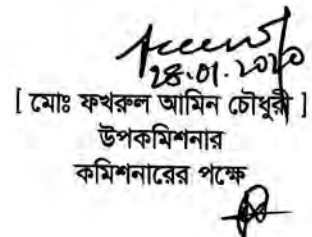 28.01.2020
[ মোঃ ফখরুল আমিন চৌধুরী ]
উপকমিশনার
কমিশনারের পক্ষে